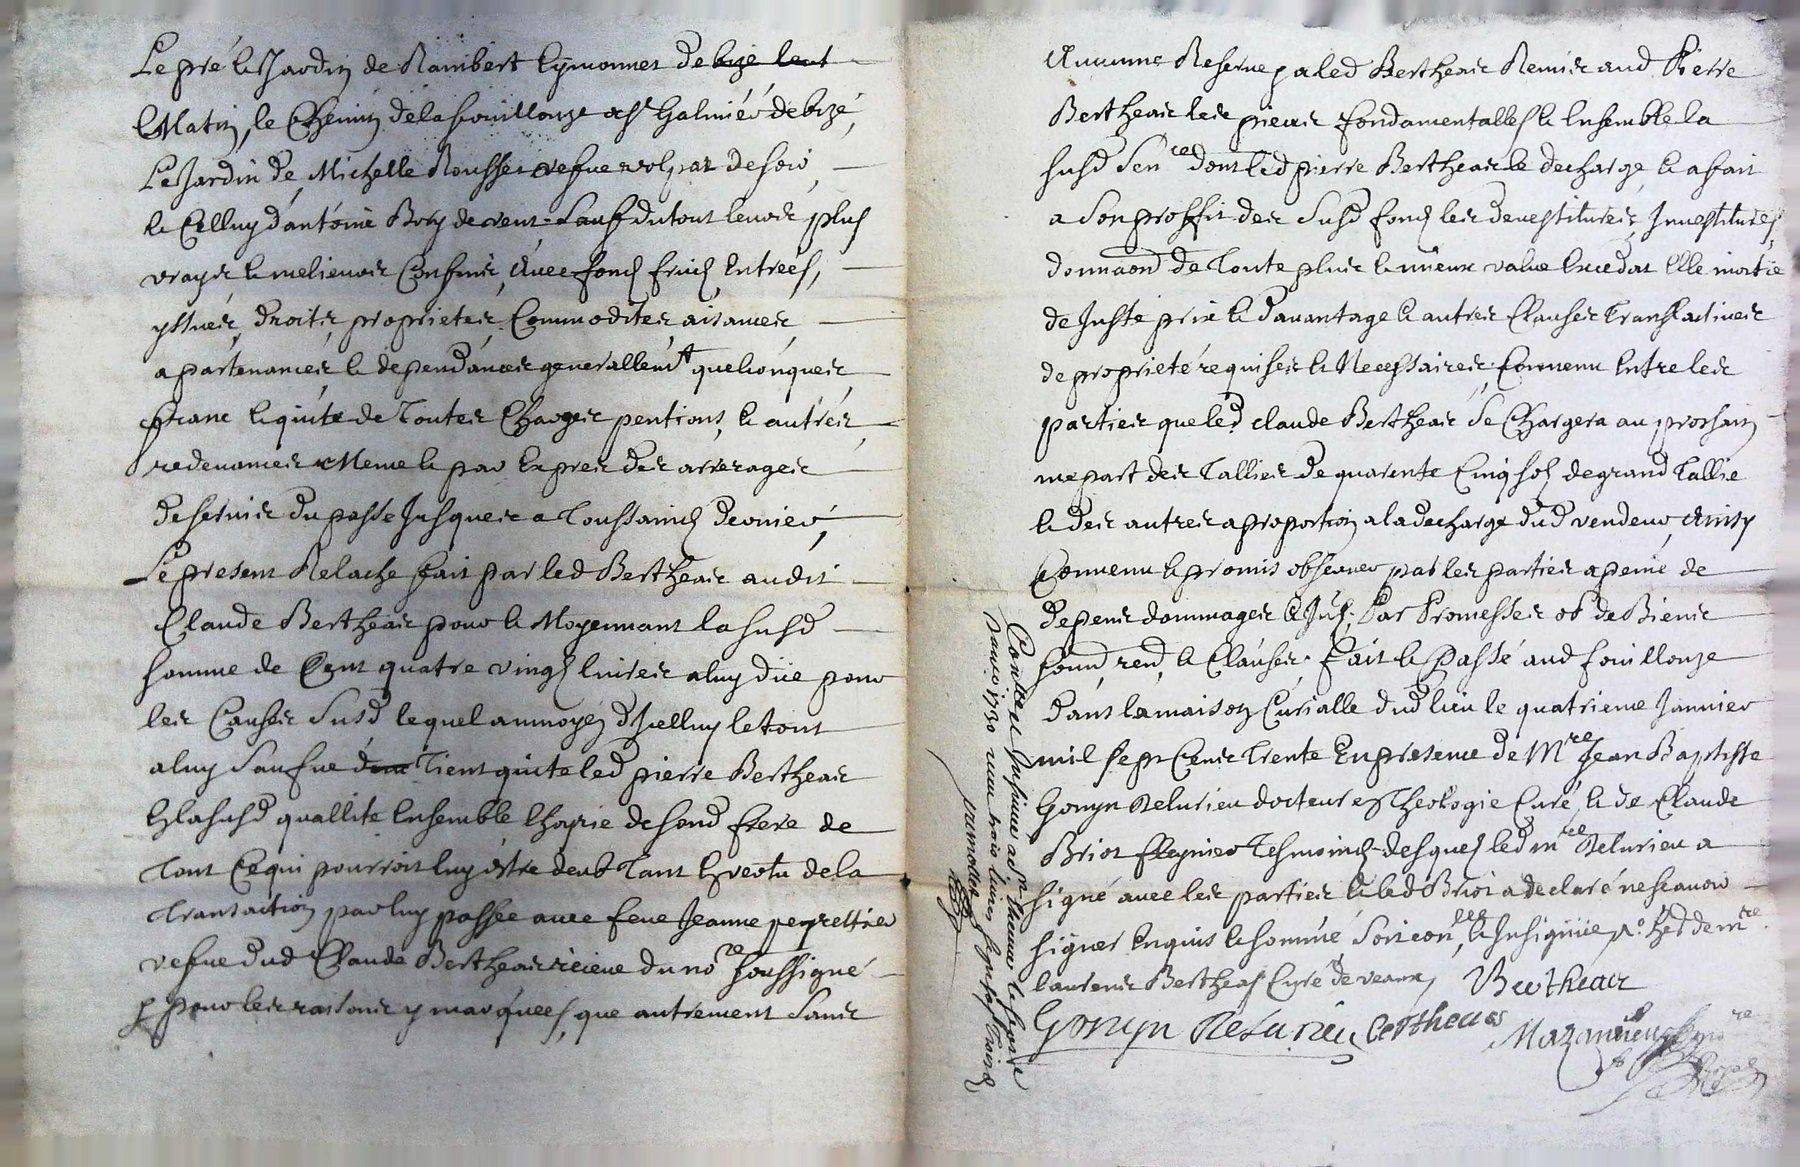 Le pré & Jardin de Rambert Eymonnet de bizé
Matin, le Chemin de la fouillouze a St Galmiér de bizé,
Le Jardin de Michelle Rousset vefve de soir,
& Celluy d'antoine Bory de vent, Sauf du tout leurs plus
vrays & melieurs Confins, Avec fonds fruicts Entrées,
yssues, droits proprietes Commodites aisances
apartenances, & dependances generallemt quelconques
franc & quitte de Toutes Charges pentions, & autres
redevances Meme & par Expres des arrerages
de servis du passé Jusques a Toussaincts dernier,
Le present Relache fait par led Bertheas audit
Claude Bertheas pour & Moyennant la susd
somme de Cent quatre vingts livres a luy düe pour
les Causes Susd lequel au moyen d'Jcelluy le tout
a luy Tient quitte led pierre Bertheas
En la susd quallite Ensemble de sond frere de
Tout Ce qui pourroit luy estre deub Tant En vertu de la
Transaction par luy passée avec feue Jeanne peyrettier
vefve dud Claude Bertheas du nore soussigné
& pour les raisons y marquées, que autrement Sans
Aucune Reserve pa led Bertheas Remis aud Pierre
Bertheas les pieces fondamentalles & Ensemble la
susd dont led pierre Bertheas le decharge, & a fait
a Son proffit des Susd fonds les devestitures, Jnvestitures,
donnaon de Toute plus & mieux value Excedat Elle moitié
de Juste prix & davantage & autres Clauses Translatives
de proprieté requises & Necessaires, Convenu Entre les
parties que led claude Bertheas Se Chargera au prochain
mepart des Tallies de quarente Cinq sols de grand Tallie
& des autres a proportion a la decharge dud vendeur, Ainsy
Convenu & promis observer par les parties a peine de
depens dommages & Jnt. Par Promesses ob de Biens
soumd, rend, & Clauses. fait & Passé aud fouillouze
dans la maison Curialle dud lieu le quatrieme Janvier
mil sept Cents Trente En presence de Mre Jean Baptiste
Gonyn Relurieu docteur en Theologie Curé, & de Claude
Briot Tesmoings desquels led mre Relurieu a
signé avec les parties & led Briot a declaré ne scavoir
signer Enquis & sommé
laurens Bertheas Curé de veaux, Bertheas
Gonyn Relurieu Bertheas
Royal